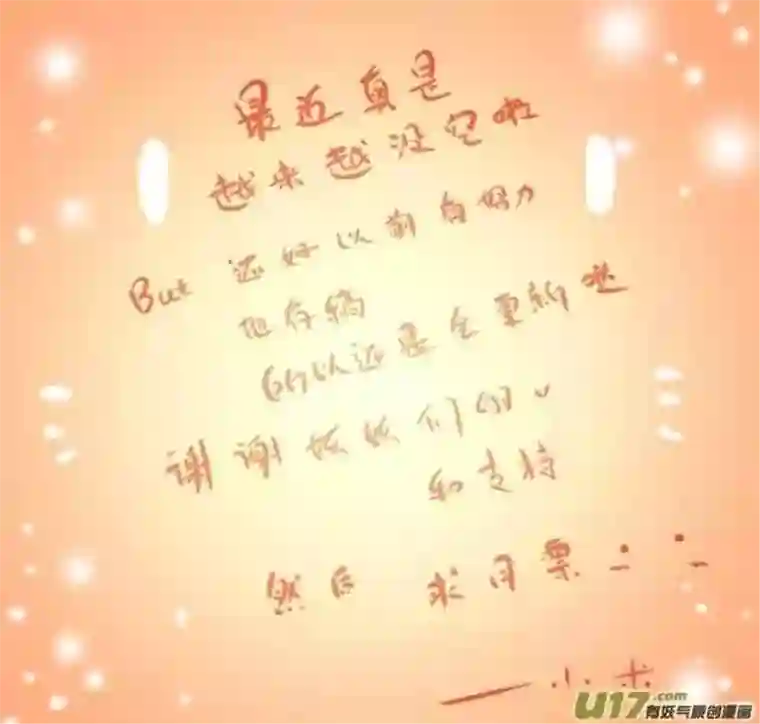 最近真是
越来越没空啦
But 还好以前有努力
地存稿
所以还是会更新哒
谢谢妖妖们的
和支持
然后 求月票
——小米
U17.com
有妖气原创漫画